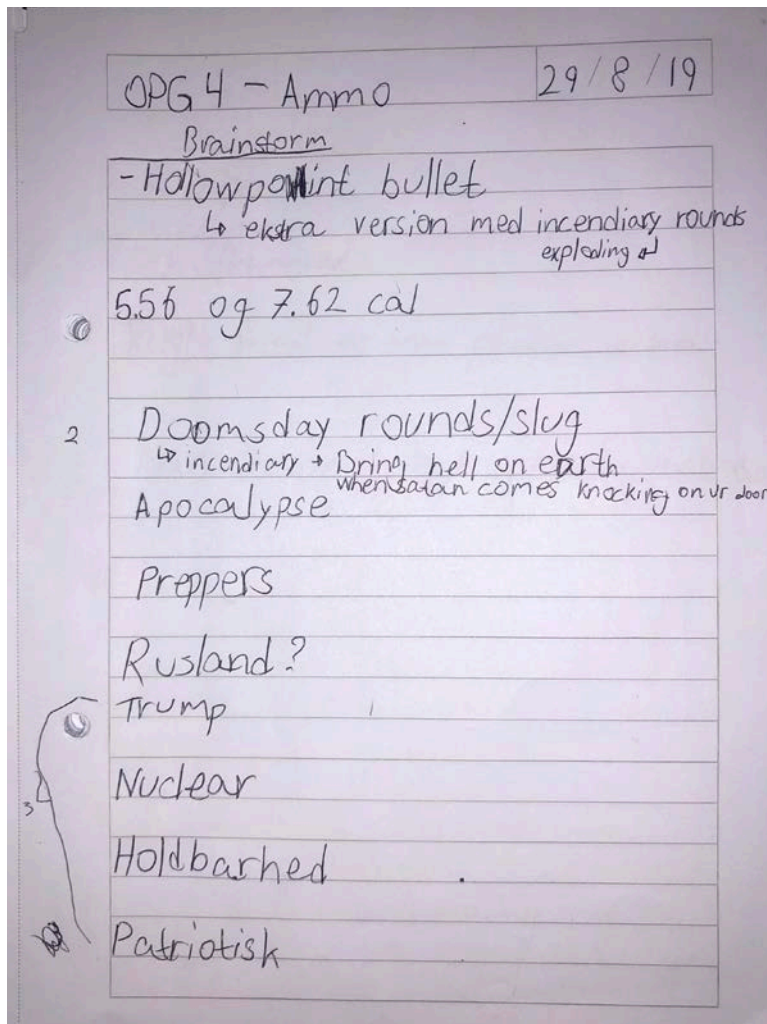 OPG 4 - Ammo
29/8/19
Brainstorm
- Hollowpoint bullet
↳ ekstra version med incendiary rounds
exploding ↲
5.56 og 7.62 cal
2
Doomsday rounds/slug
↳ incendiary → Bring hell on earth
when satan comes knocking on ur door
Apocalypse
Preppers
Rusland?
Trump
Nuclear
3
Holdbarhed
Patriotisk